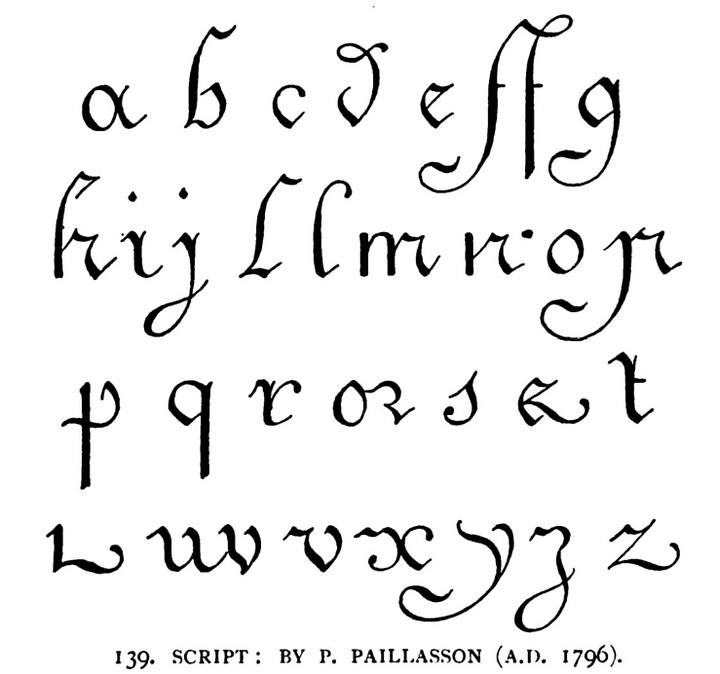 a b c d e f f g
h i j l l m n o p
p q r o r s & t
u v v x y z z
139. SCRIPT: BY P. PAILLASSON (A.D. 1796).